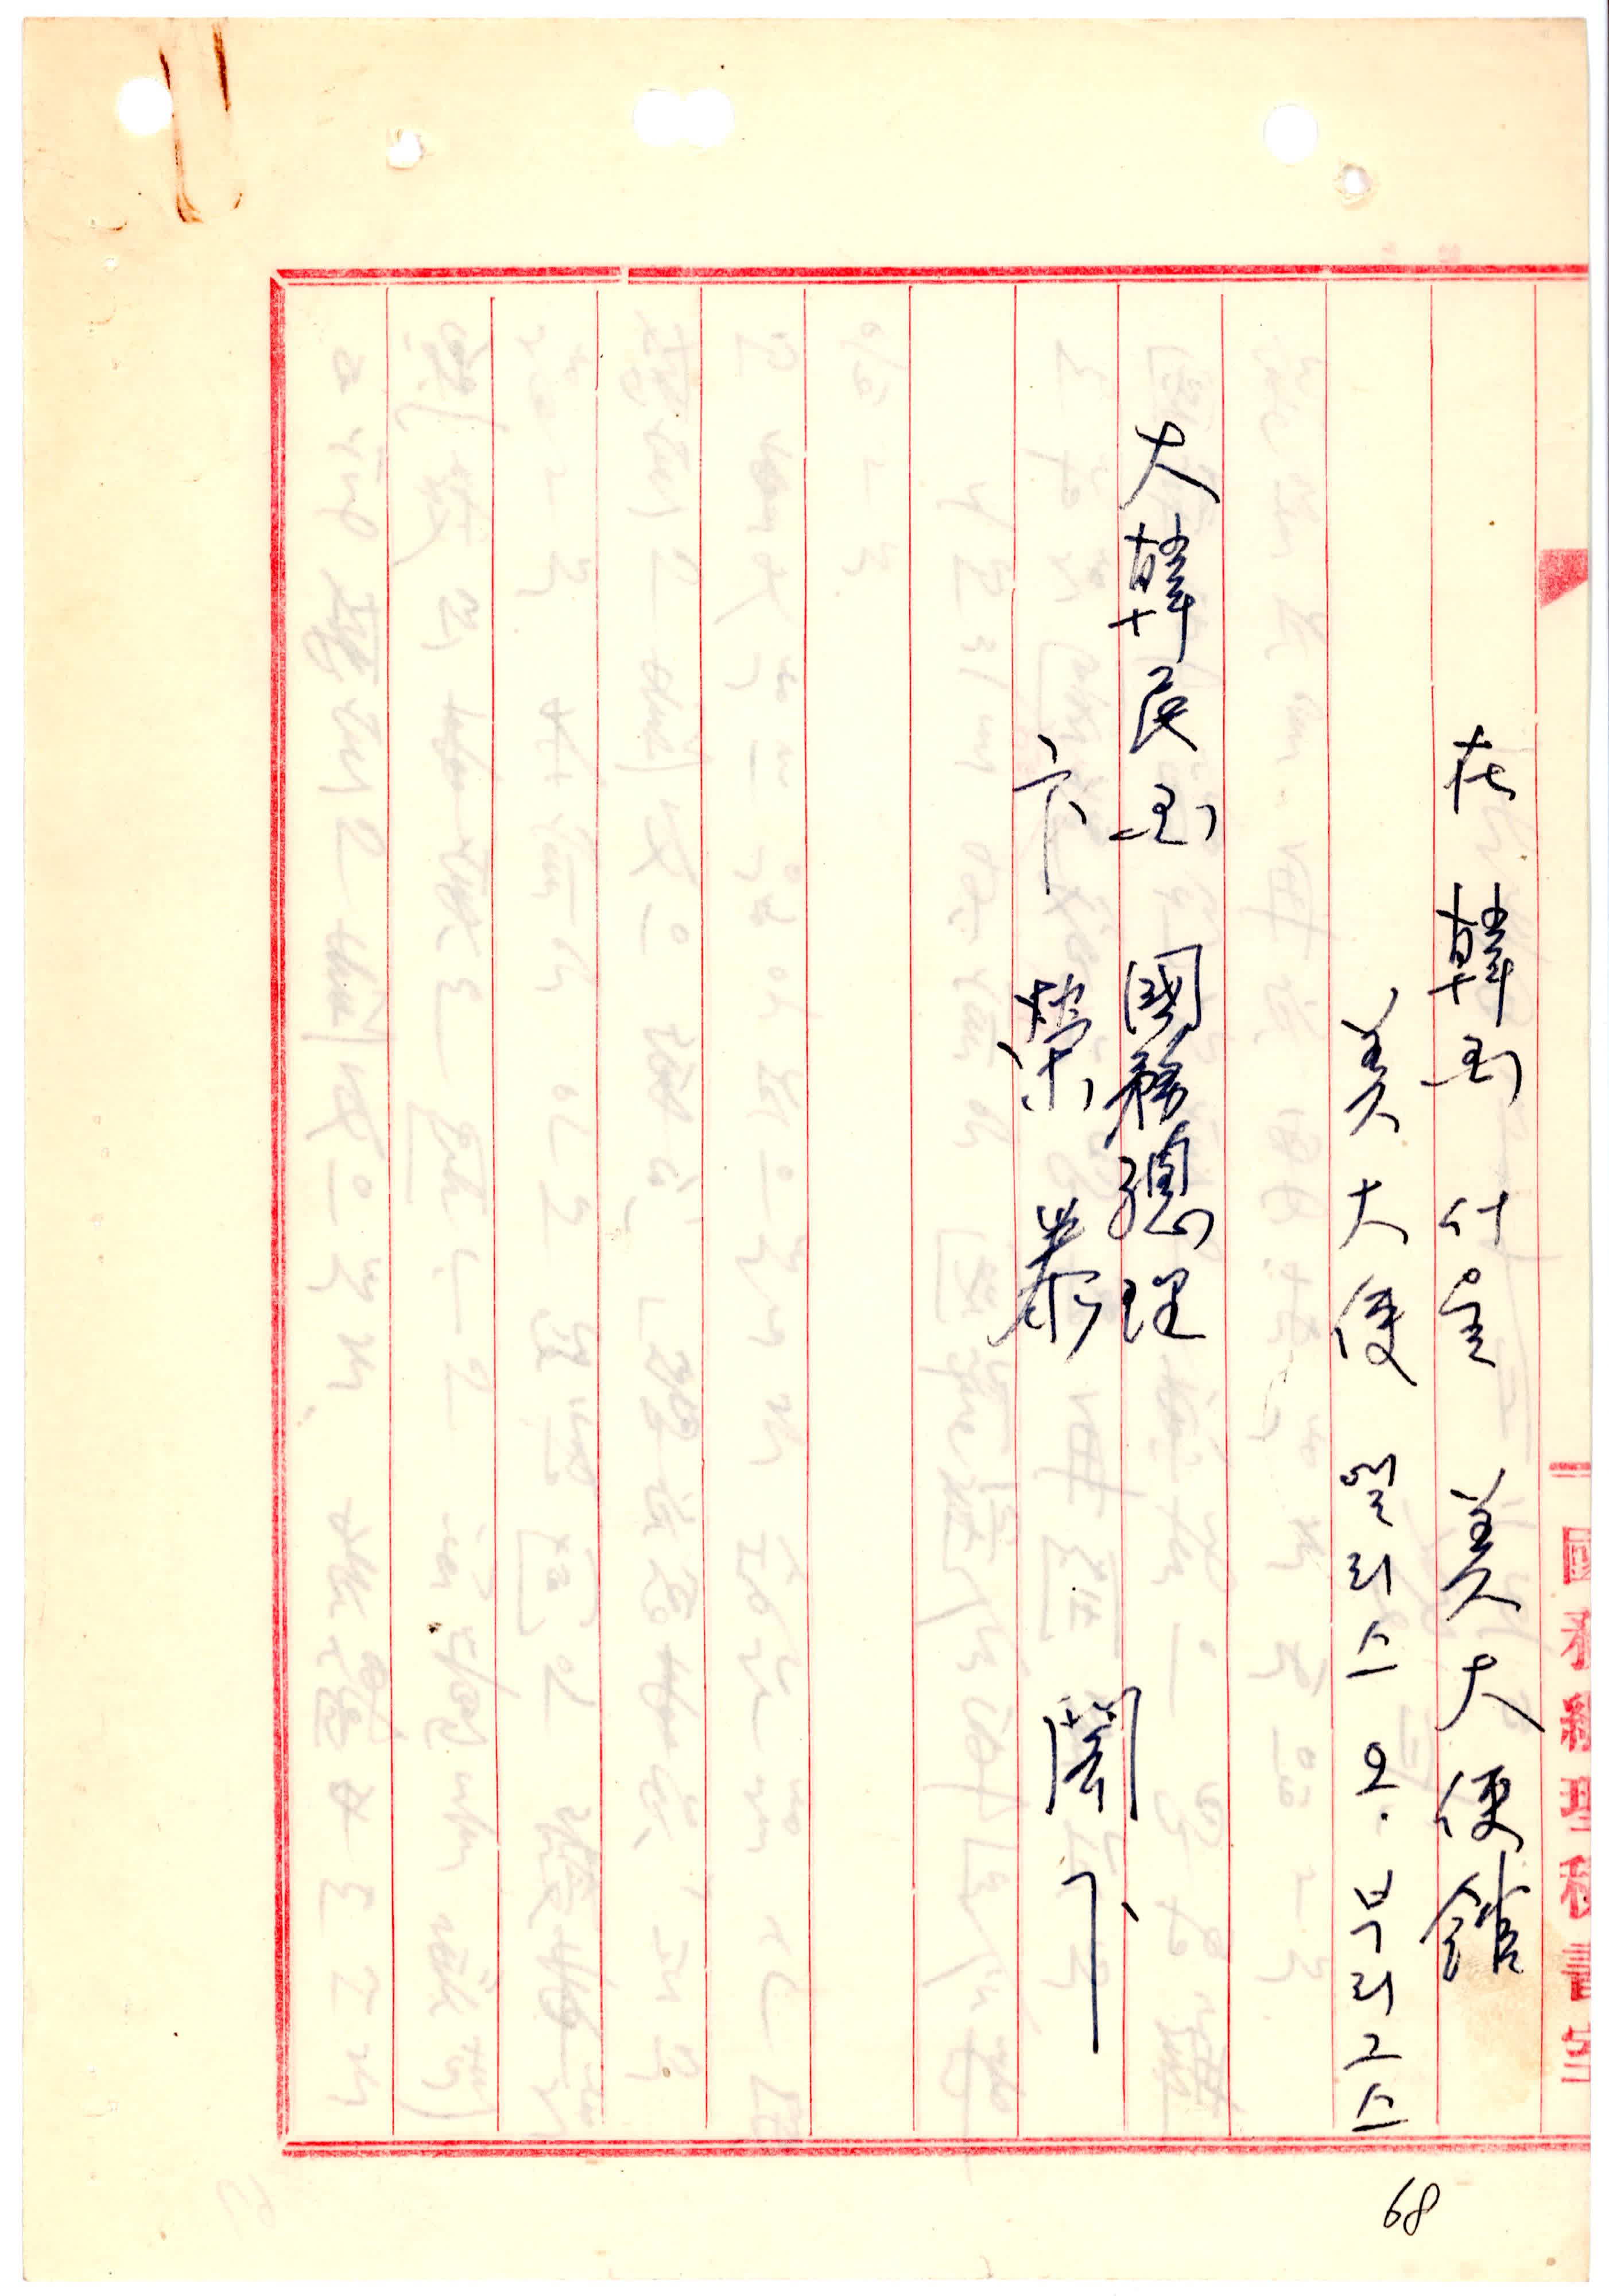 國務總理秘書室
在韓国 서울 美大使館
美大使 엘리스 오. 부리그스
大韓民国 國務總理
卞榮泰 閣下
68